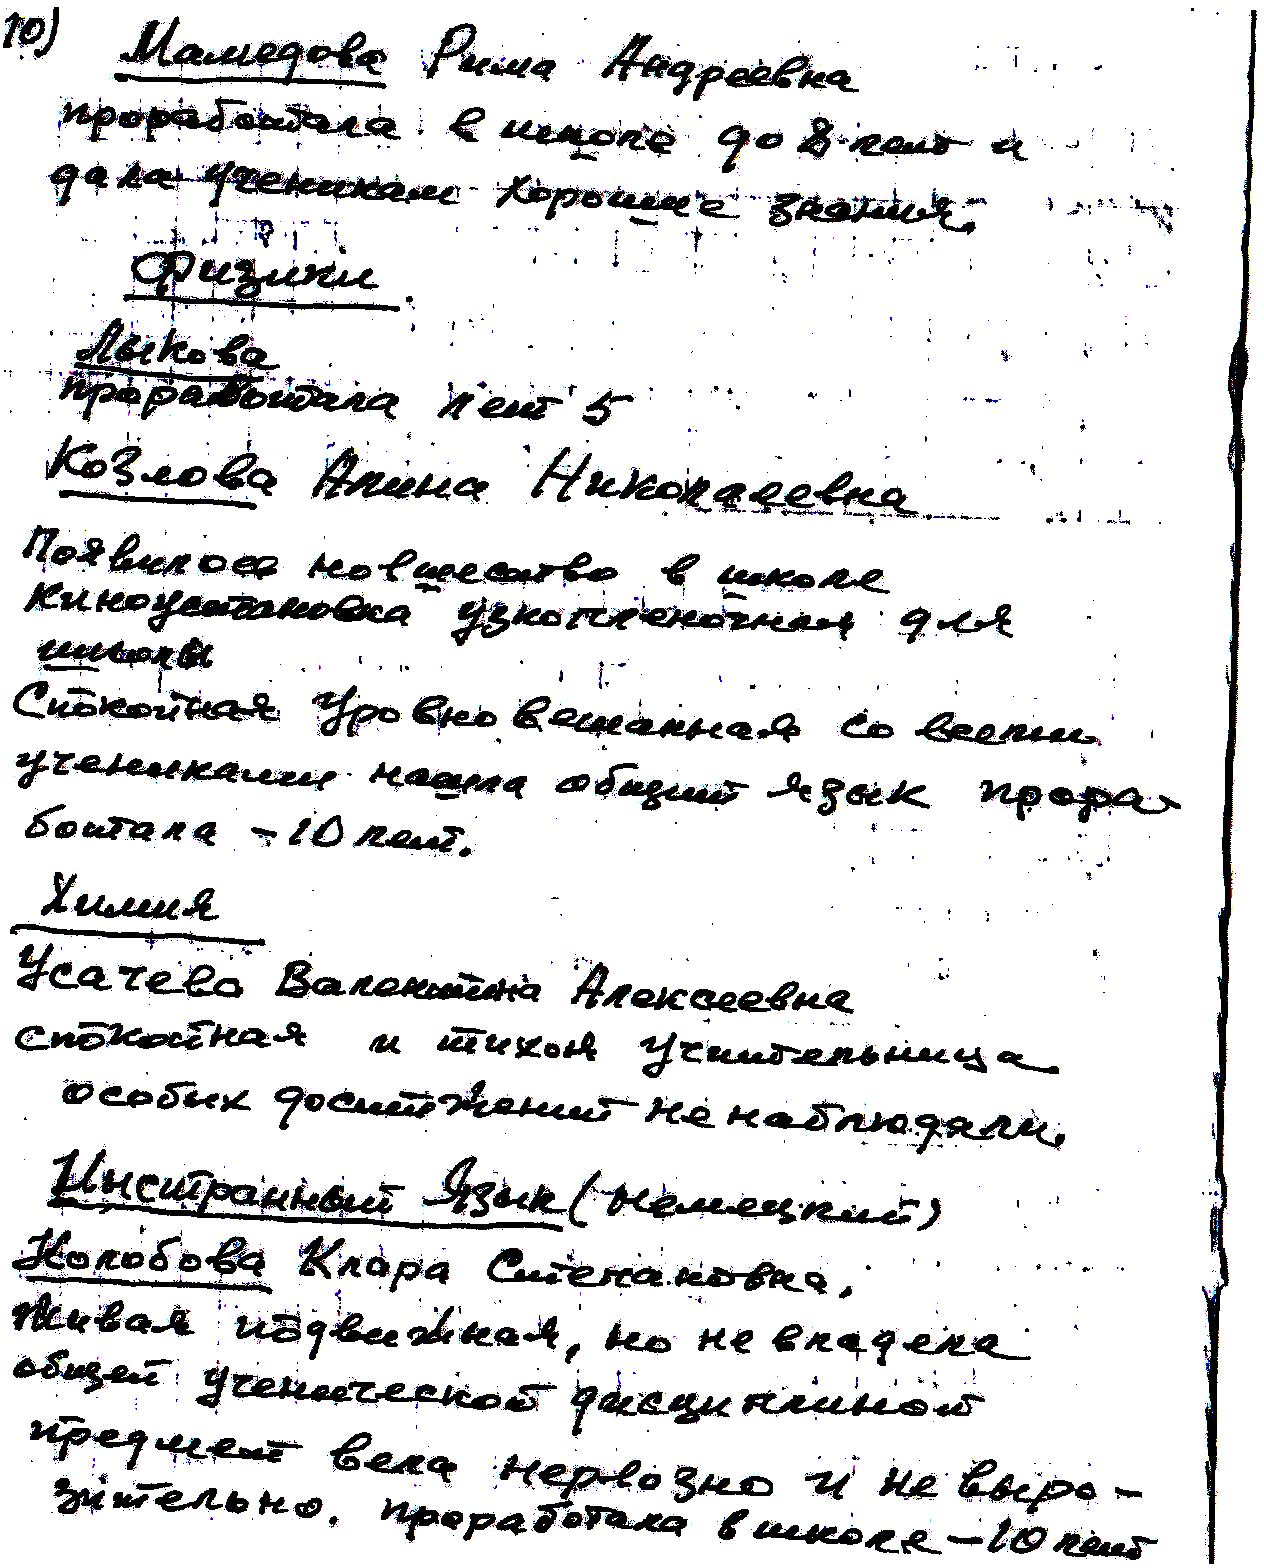 10) Мамедова Рима Андреевна
проработала в школе до 8 лет и
дала ученикам хорошие знания.
Физики
Лыкова
проработала лет 5
Козлова Алина Николаевна
Появилось новшество в школе
Киноустановка узкопленочная для
школы
Спокойная уровновешанная со всеми
учениками нашла общий язык прора-
ботала - 10 лет.
Химия
Усачево Валентина Алексеевна
спокойная и тихоя учительница
особых достижений не наблюдали.
Инстранный язык (немецкий)
Колобова Клара Степановна.
Живая подвижная, но не владела
общей ученической дисциплиной
предмет вела нервозно и не выро-
зительно. проработала в школе - 10 лет